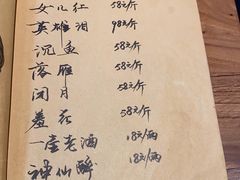 女儿红 58元/斤
英雄泪 98元/斤
沉鱼 58元/斤
落雁 58元/斤
闭月 58元/斤
羞花 58元/斤
一壶老酒 18元/两
神仙醉 18元/两